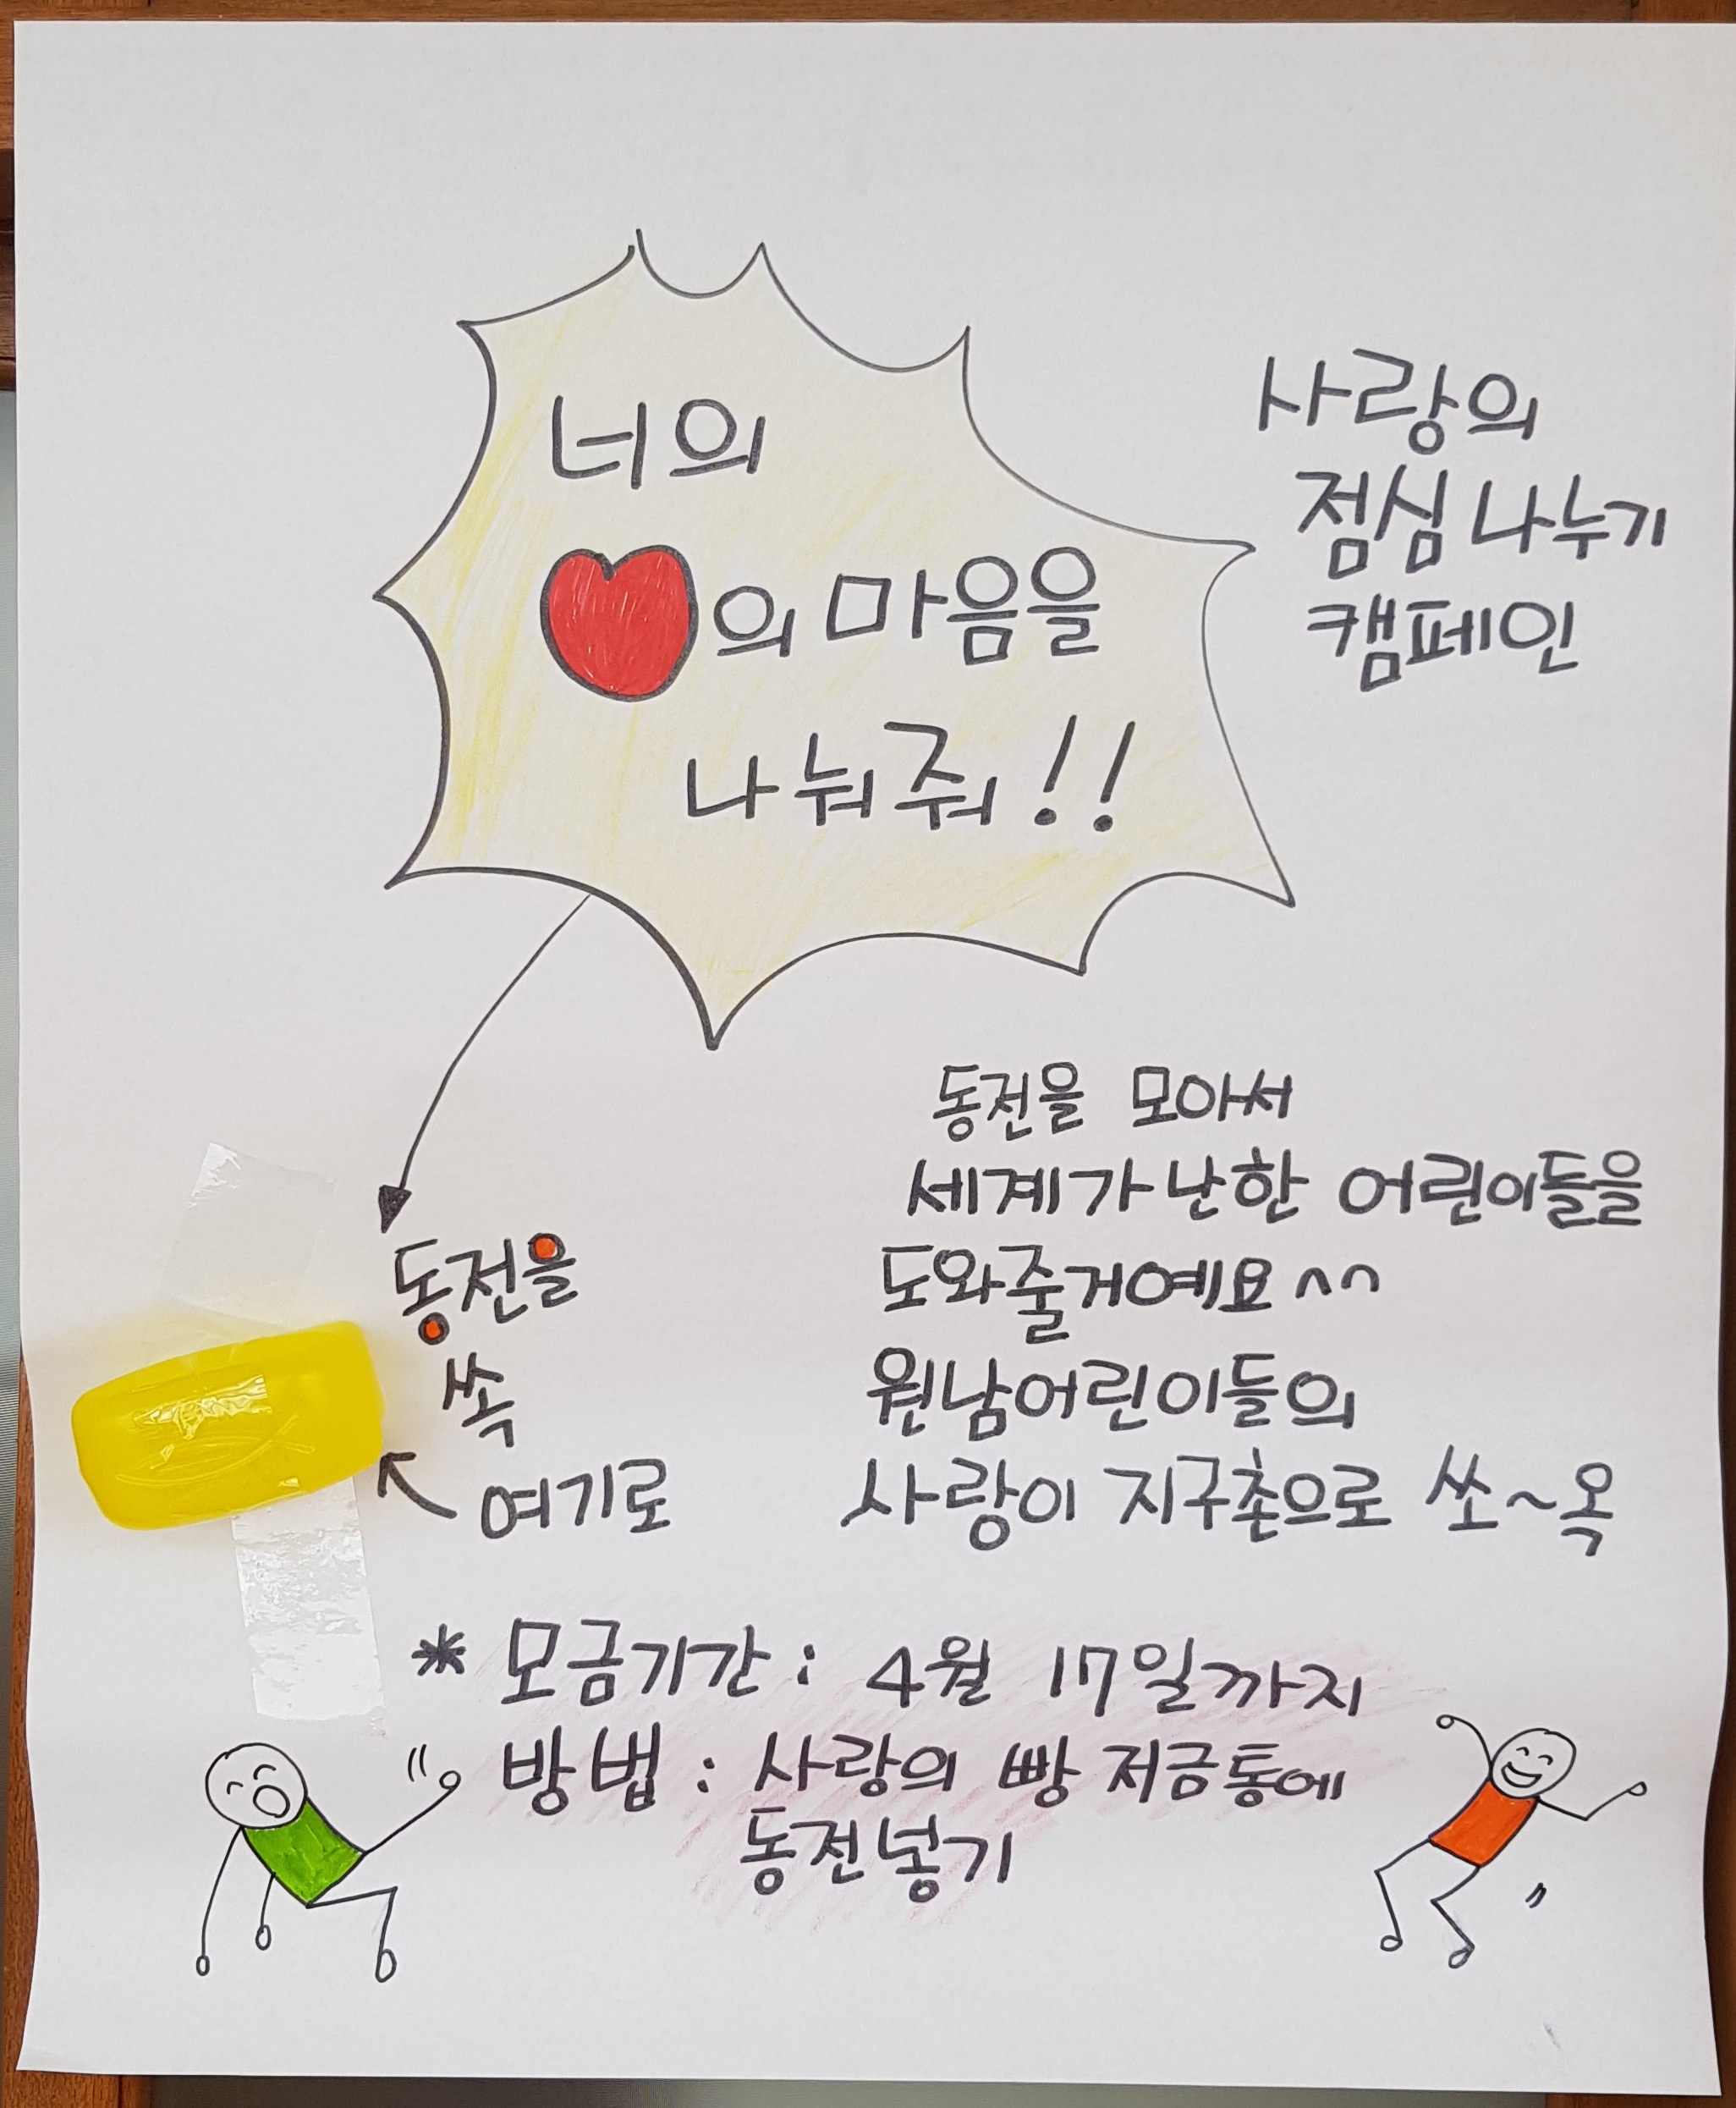 너의
의 마음을
나눠줘!!
사랑의
점심 나누기
캠페인
동전을
쏙
여기로
동전을 모아서
세계가난한 어린이들을
도와줄거예요^^
원남어린이들의
사랑이 지구촌으로 쏘~옥
* 모금기간 : 4월 17일까지
방법 : 사랑의 빵 저금통에
동전넣기